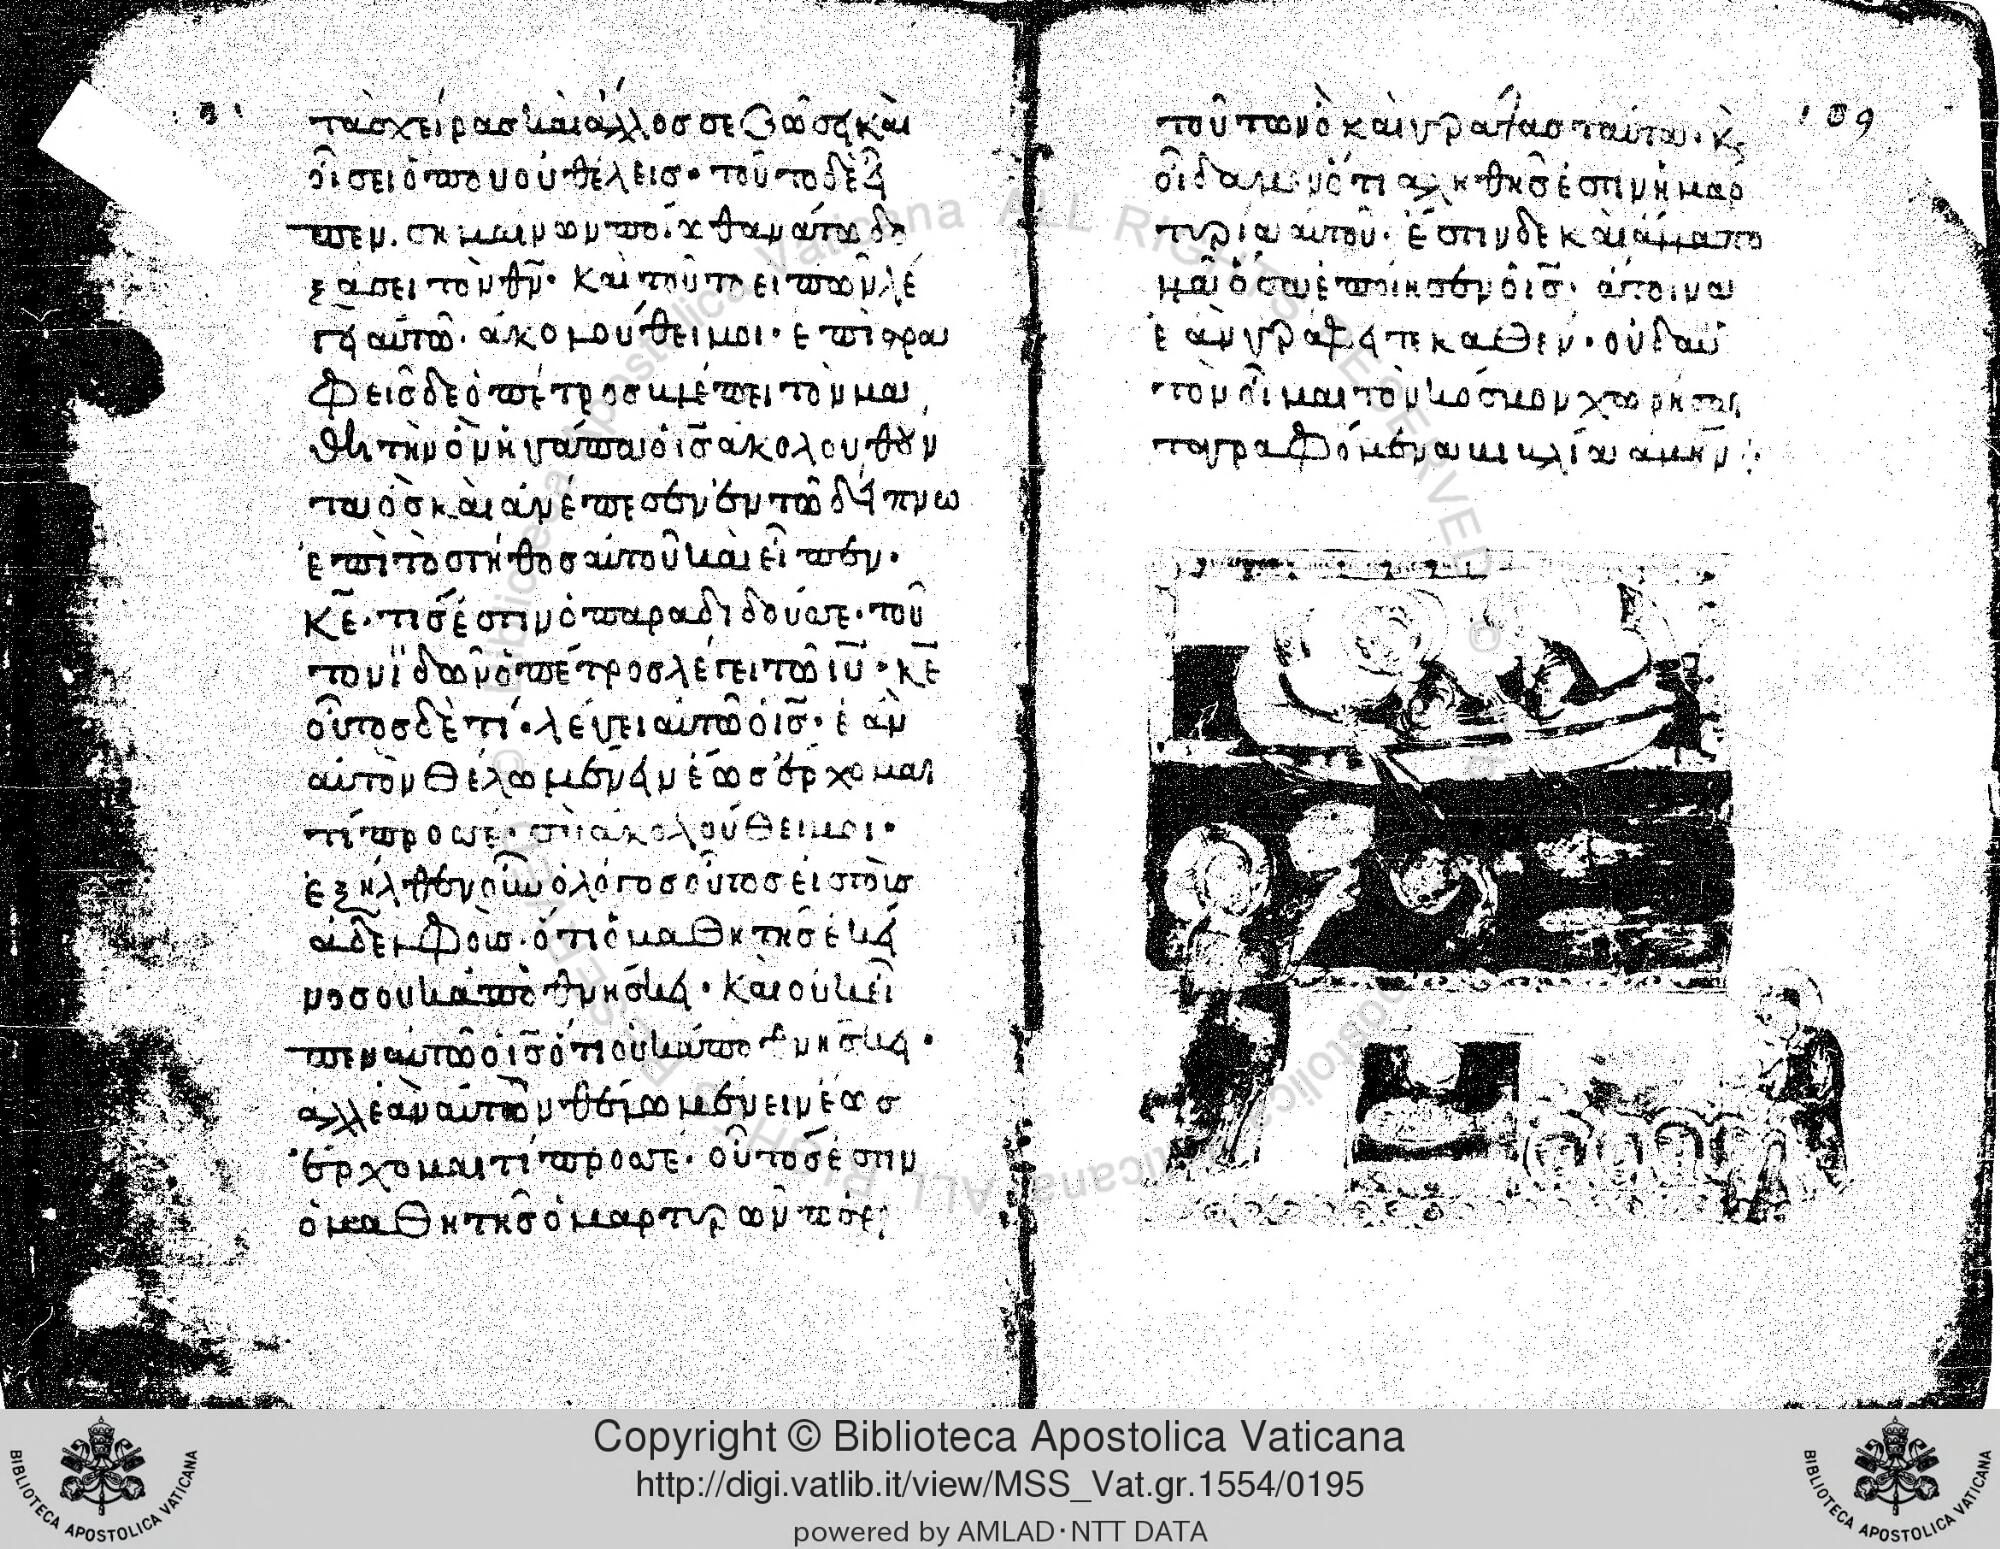 τὰσ χεῖρασ καὶ ἄλλοσ σε ζώσει καὶ
οἴσει ὅπου οὐ θέλεισ· τοῦτο δὲ εἶ
πεν. σημαίνων ποίω θανάτω δο
ξάσει τὸν θ̅ν̅· καὶ τοῦτο εἰπὼν λέ
γει αὐτῶ· ἀκολούθει μοι· ἐπιστρα
φεὶσ δὲ ὁ πέτροσ βλέπει τὸν μα
θητὴν ὃν ἠγάπα ὁ ι̅σ̅ ἀκολουθοῦν
τα ὃσ καὶ ἀνέπεσεν ἐν τῶ δείπνω
ἐπὶ τὸ στῆθοσ αὐτοῦ καὶ εἶπεν·
κ̅ε̅· τίσ ἐστιν ὁ παραδιδούσ σε· τοῦ
τον ἰδὼν ὁ πέτροσ λέγει τῶ ι̅υ̅· κ̅ε̅
οὗτοσ δὲ τί· λέγει αὐτῶ ὁ ι̅σ̅· ἐὰν
αὐτὸν θέλω μένειν ἕωσ ἔρχομαι
τί πρόσ σε· σὺ ἀκολούθει μοι·
ἐξῆλθεν οὖν ὁ λόγοσ οὗτοσ εἰσ τοὺσ
ἀδελφοὺσ· ὅτι ὁ μαθητὴσ ἐκεῖ
νοσ οὐκ ἀποθνήσκει· καὶ οὐκ εἶ
πεν αὐτῶ ὁ ι̅σ̅ ὅτι οὐκ ἀποθνήσκει·
ἀλλ ἐὰν αὐτὸν θέλω μένειν ἕωσ
ἔρχομαι τί πρόσ σε· οὗτόσ ἐστιν
ὁ μαθητὴσ ὁ μαρτυρῶν περὶ
τούτων ὁ καὶ γράψασ ταῦτα· κ̀
οἴδαμεν ὅτι ἀληθήσ ἐστιν ἡ μαρ
τυρία αὐτοῦ· ἔστιν δὲ καὶ ἄλλα πο
λλὰ ὅσα ἐποίησεν ὁ ι̅σ̅· ἅτινα
ἐὰν γράφηται καθ ἕν· οὐδ αὐ
τὸν οἶμαι τὸν κόσμον χωρῆσαι
τὰ γραφόμενα βιβλία ἀμήν
189
Copyright © Biblioteca Apostolica Vaticana
http://digi.vatlib.it/view/MSS_Vat.gr.1554/0195
powered by AMLAD·NTT DATA
BIBLIOTECA APOSTOLICA VATICANA
BIBLIOTECA APOSTOLICA VATICANA